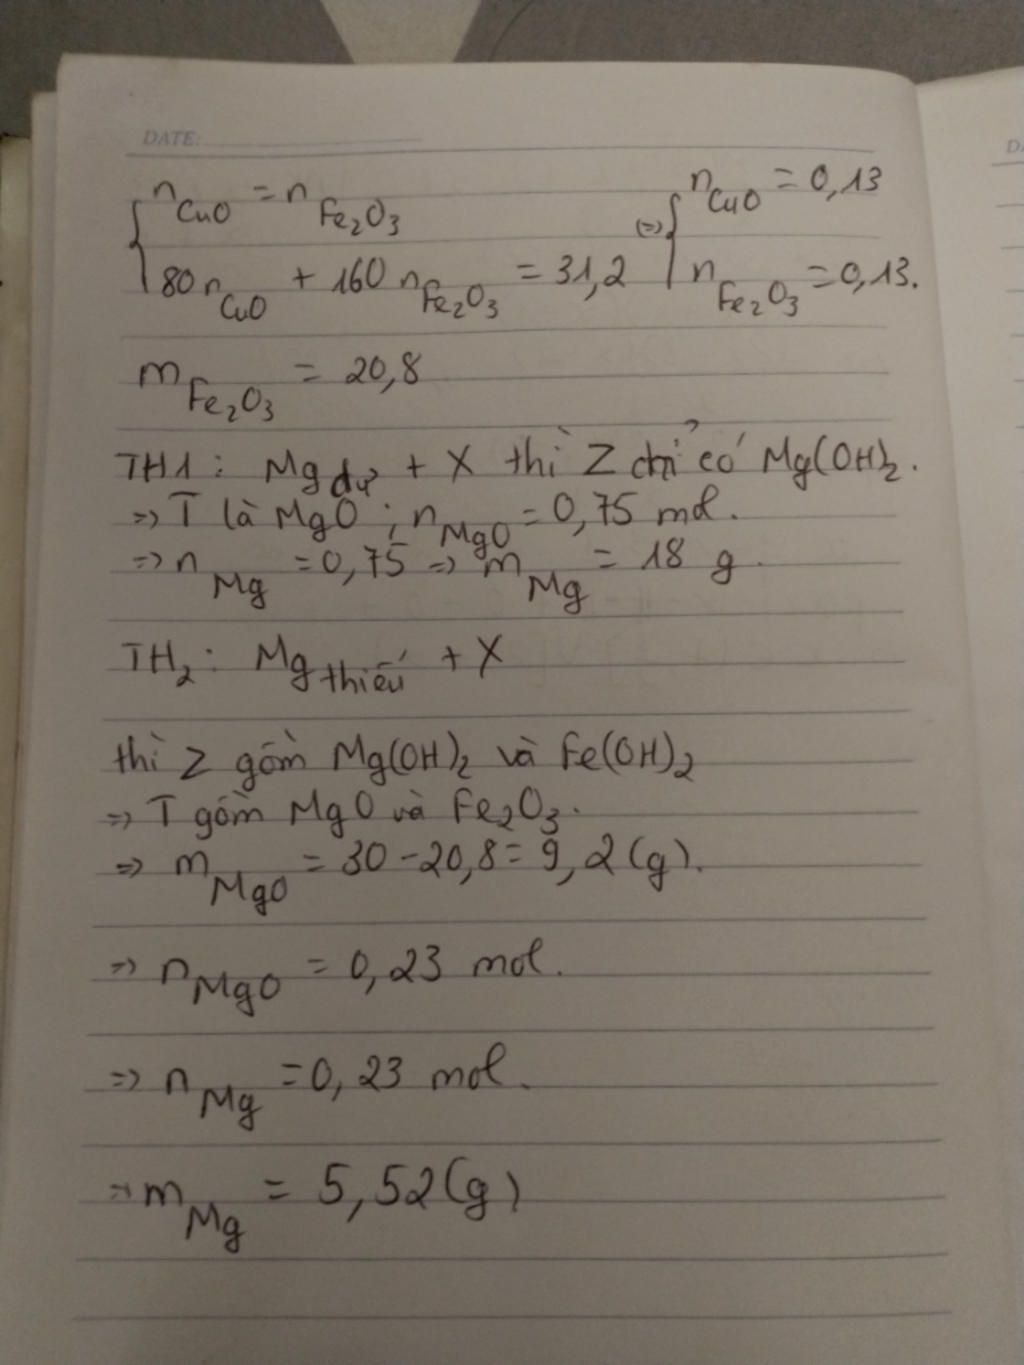 DATE:
n CuO = n Fe2O3 (=) n CuO = 0,13
80 n CuO + 160 n Fe2O3 = 31,2 n Fe2O3 = 0,13.
m Fe2O3 = 20,8
TH1 : Mg dư + X thì Z chỉ có Mg(OH)2.
=> T là MgO ; n MgO = 0,75 mol.
=> n Mg = 0,75 => m Mg = 18 g.
TH2 : Mg thiếu + X
thì Z gồm Mg(OH)2 và Fe(OH)2
=> T gồm MgO và Fe2O3.
=> m MgO = 30 - 20,8 = 9,2 (g).
=> n MgO = 0,23 mol.
=> n Mg = 0,23 mol.
=> m Mg = 5,52 (g)